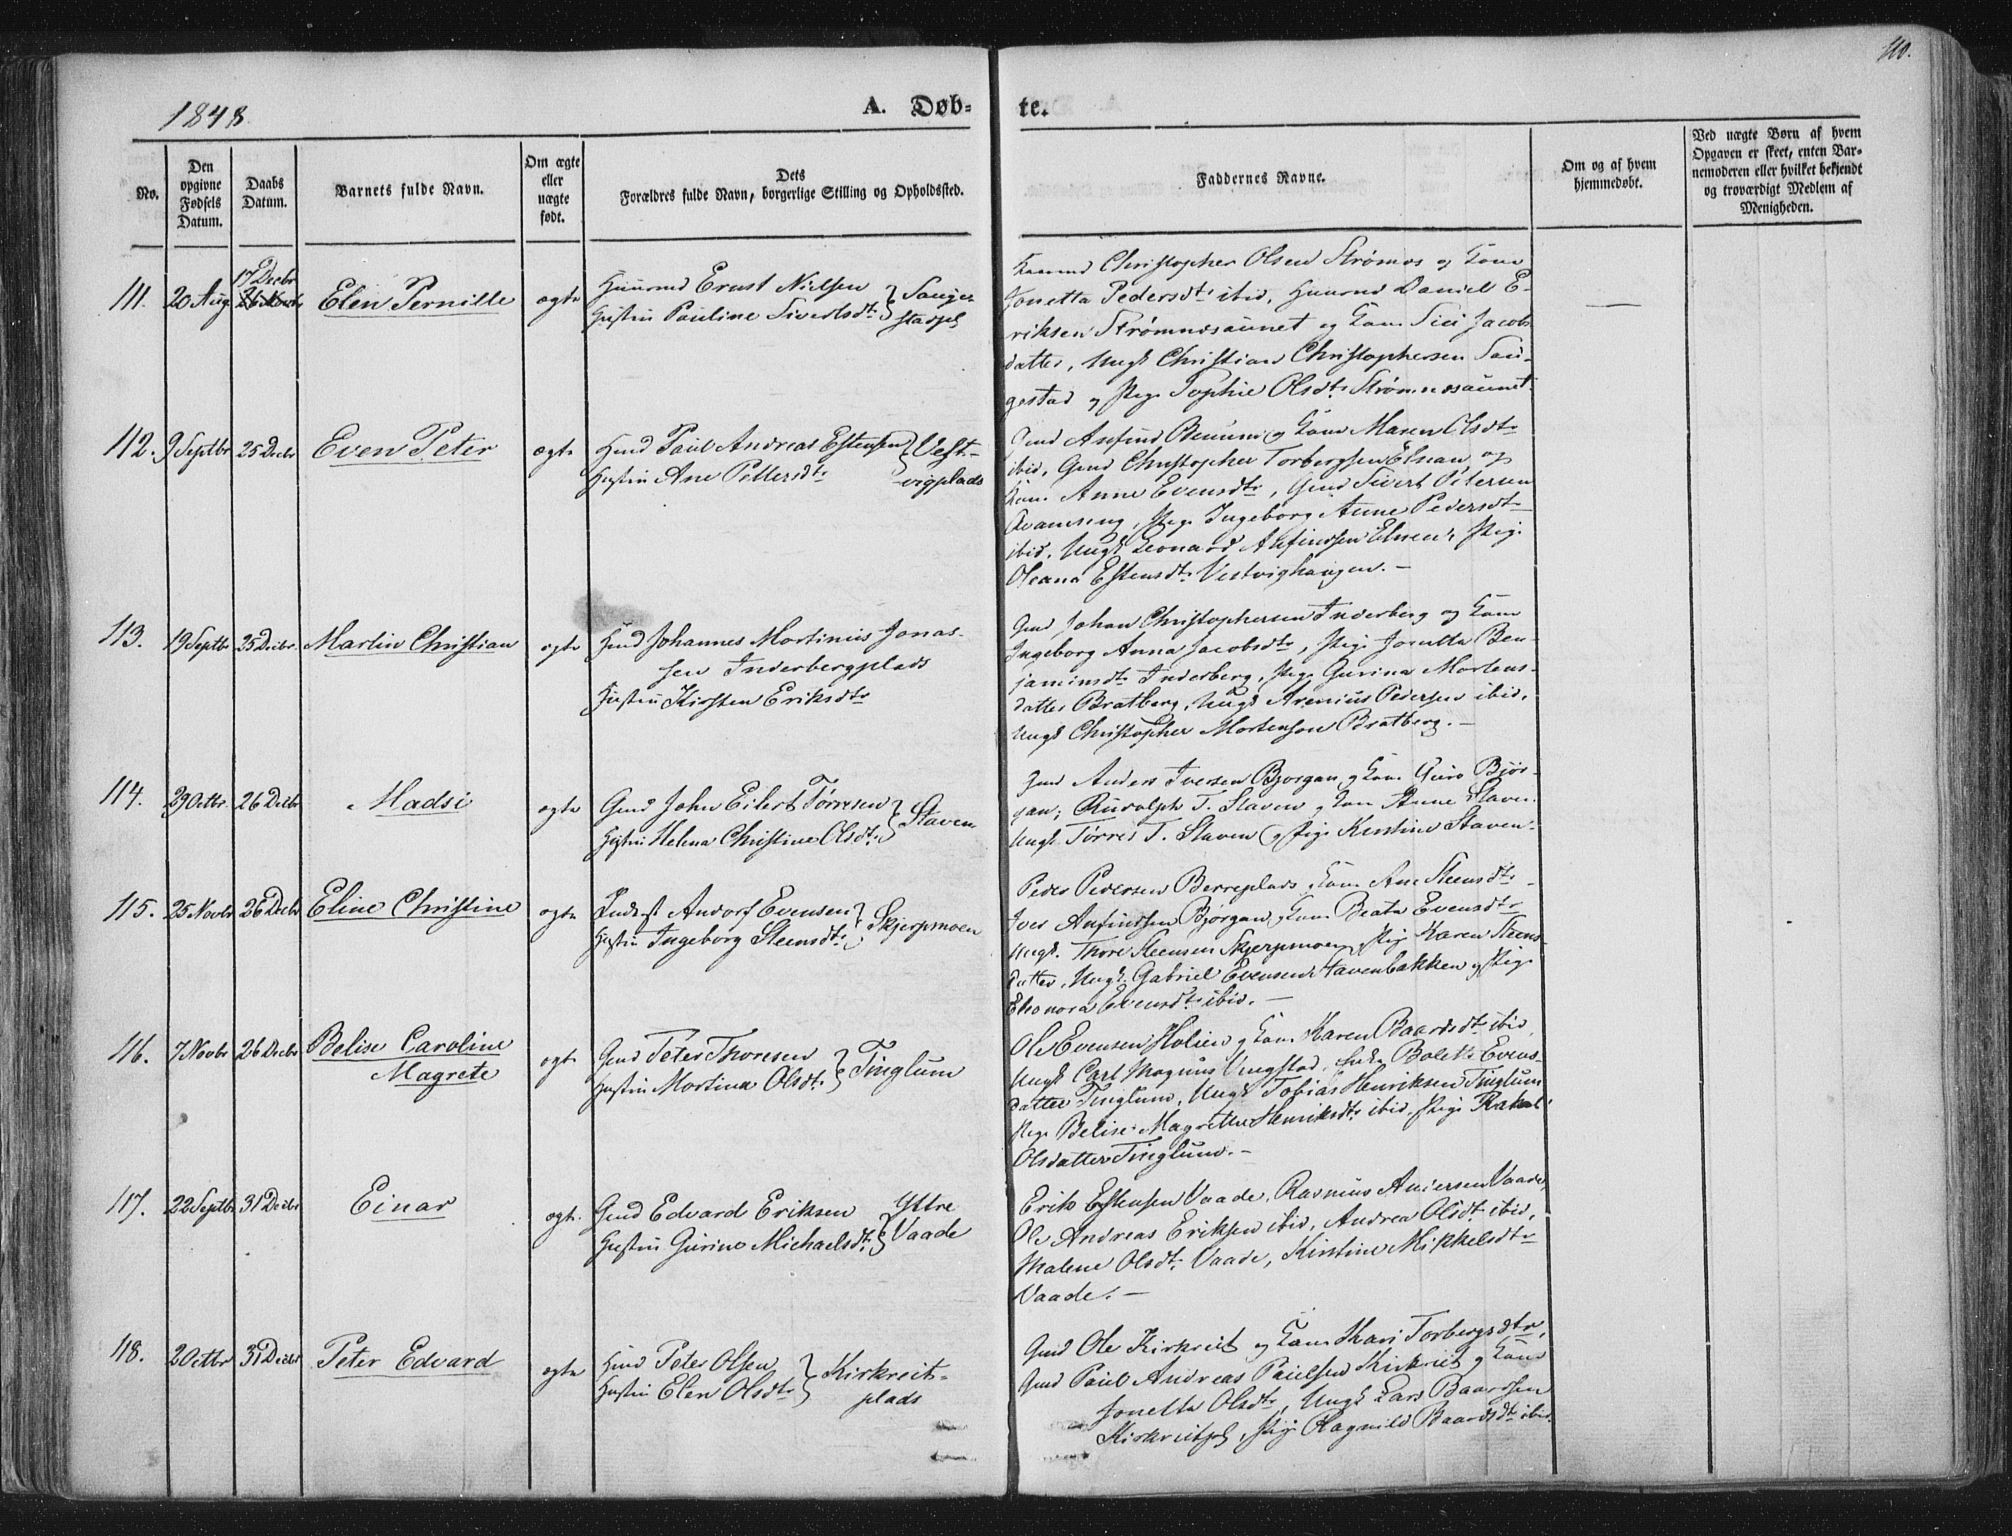 110.
1848
A. Døb-
te.
No.
Den opgivne Fødsels Datum.
Daabs Datum.
Barnets fulde Navn.
Om ægte eller uægte født.
Dets
Forældres fulde Navn, borgerlige Stilling og Opholdssted.
Faddernes Navne.
Om og af hvem hjemmedøbt.
Ved uægte Børn af hvem Opgaven er skeet, enten Barnemoderen eller hvilket bekjendt og troværdigt Medlem af Menigheden.
111. 20 Aug 17 Decbr Elen Pernille ægte
Huusmd Ernst Nielsen
Hustru Pauline Sivertsdtr
Sauge-
stadpl
Christopher Olsen Strømæs og Kone
Jonetta Pedersdtr ibid, Huusmd Daniel E-
riksen Strømnæsaunet og Kone Siri Jacobs
datter, Ungk Christian Christophersen Sau-
gestad og Pige Sophie Olsdtr Strømnæsaunet
112. 9 Septbr 25 Decbr Even Peter ægte
Hmd Paul Andreas Estensen
Hustru Ane Pettersdtr
Vest-
vigplads
Gmd Anfind Benum og Kone Maren Olsdtr
ibid, Gmd Christopher Torbergsen Elnan og
Kone Anne Evensdtr, Gmd Sivert Petersen
Qvamseng, Pige Ingeborg Anne Pedersdtr
ibid, Ungk Leonard Anfindsen Elnan, Pige
Oleana Estensdtr Vestvighaugen. —
113. 19 Septbr 25 Decbr Martin Christian ægte
Hmd Johannes Martinus Jonas-
sen Inderbergplads
Hustru Kirsten Eriksdtr
Gmd Johan Christophersen Inderberg og Kone
Ingeborg Anna Jacobsdtr, Pige Jonetta Ben-
jaminsdtr Inderberg, Pige Gurina Mortens-
datter Bratberg, Ungk Arenius Pedersen ibid,
Ungk Christopher Mortensen Bratberg. —
114. 29 Octbr. 26 Decbr Madsi ægte
Gmd John Eilert Tørresen
Hustru Helena Christine Olsdtr
Staven
Gmd Anders Iversen Bjørgan og Kone Guro Bjør-
gan; Rudolph T. Staven og Kone Anne Staven
Ungk Tørres T. Staven og Pige Kirstine Staven.
115. 25 Novbr 26 Decbr Eline Christine ægte
Inderst Andorf Evensen
Hustru Ingeborg Steensdtr
Skjerpmoen
Peder Pedersen Berreplads, Kone Ane Steensdtr
Iver Anfindsen Bjørgan, Kone Beata Evensdtr
Ungk. Thore Steensen Skjerpmoen, Pige Karen Steens-
datter, Ungk Gabriel Evensen Stavenbakken og Pige
Elenora Evensdtr ibid. —
116. 7 Novbr 26 Decbr Belise Caroline
Magrete ægte
Gmd Peter Thoresen
Hustru Martina Olsdtr
Tinglum
Ole Evensen Holien og Kone Karen Baardsdtr ibid,
Ungk Carl Magnus Vengstad, Bolette Evens-
datter Tinglum, Ungk Tobias Henriksen Tinglum
Pige Belise Magrethe Henriksdtr ibid, Pige Rakel
Olsdatter Tinglum. —
117. 22 Septbr 31 Decbr Einar ægte
Gmd Edvard Eriksen
Hustru Gurine Michaelsdtr
Yttre
Vaade
Erik Estensen Vaade, Rasmus Andersen Vaade,
Ole Andreas Eriksen ibid, Andrea Olsdtr ibid,
Malene Olsdtr Vaade, Kirstine Mikkelsdtr
Vaade. —
118. 2 Octbr 31 Decbr Peter Edvard ægte
Hmd Peter Olsen
Hustru Elen Olsdtr
Kirkreit-
plads
Gmd Ole Kirkreit og Kone Kari Torbergsdtr,
Gmd Paul Andreas Paulsen Kirkreit og Kone
Jonetta Olsdtr, Ungk Lars Baardsen
Kirkreitpl, Pige Ragnild Baardsdtr ibid